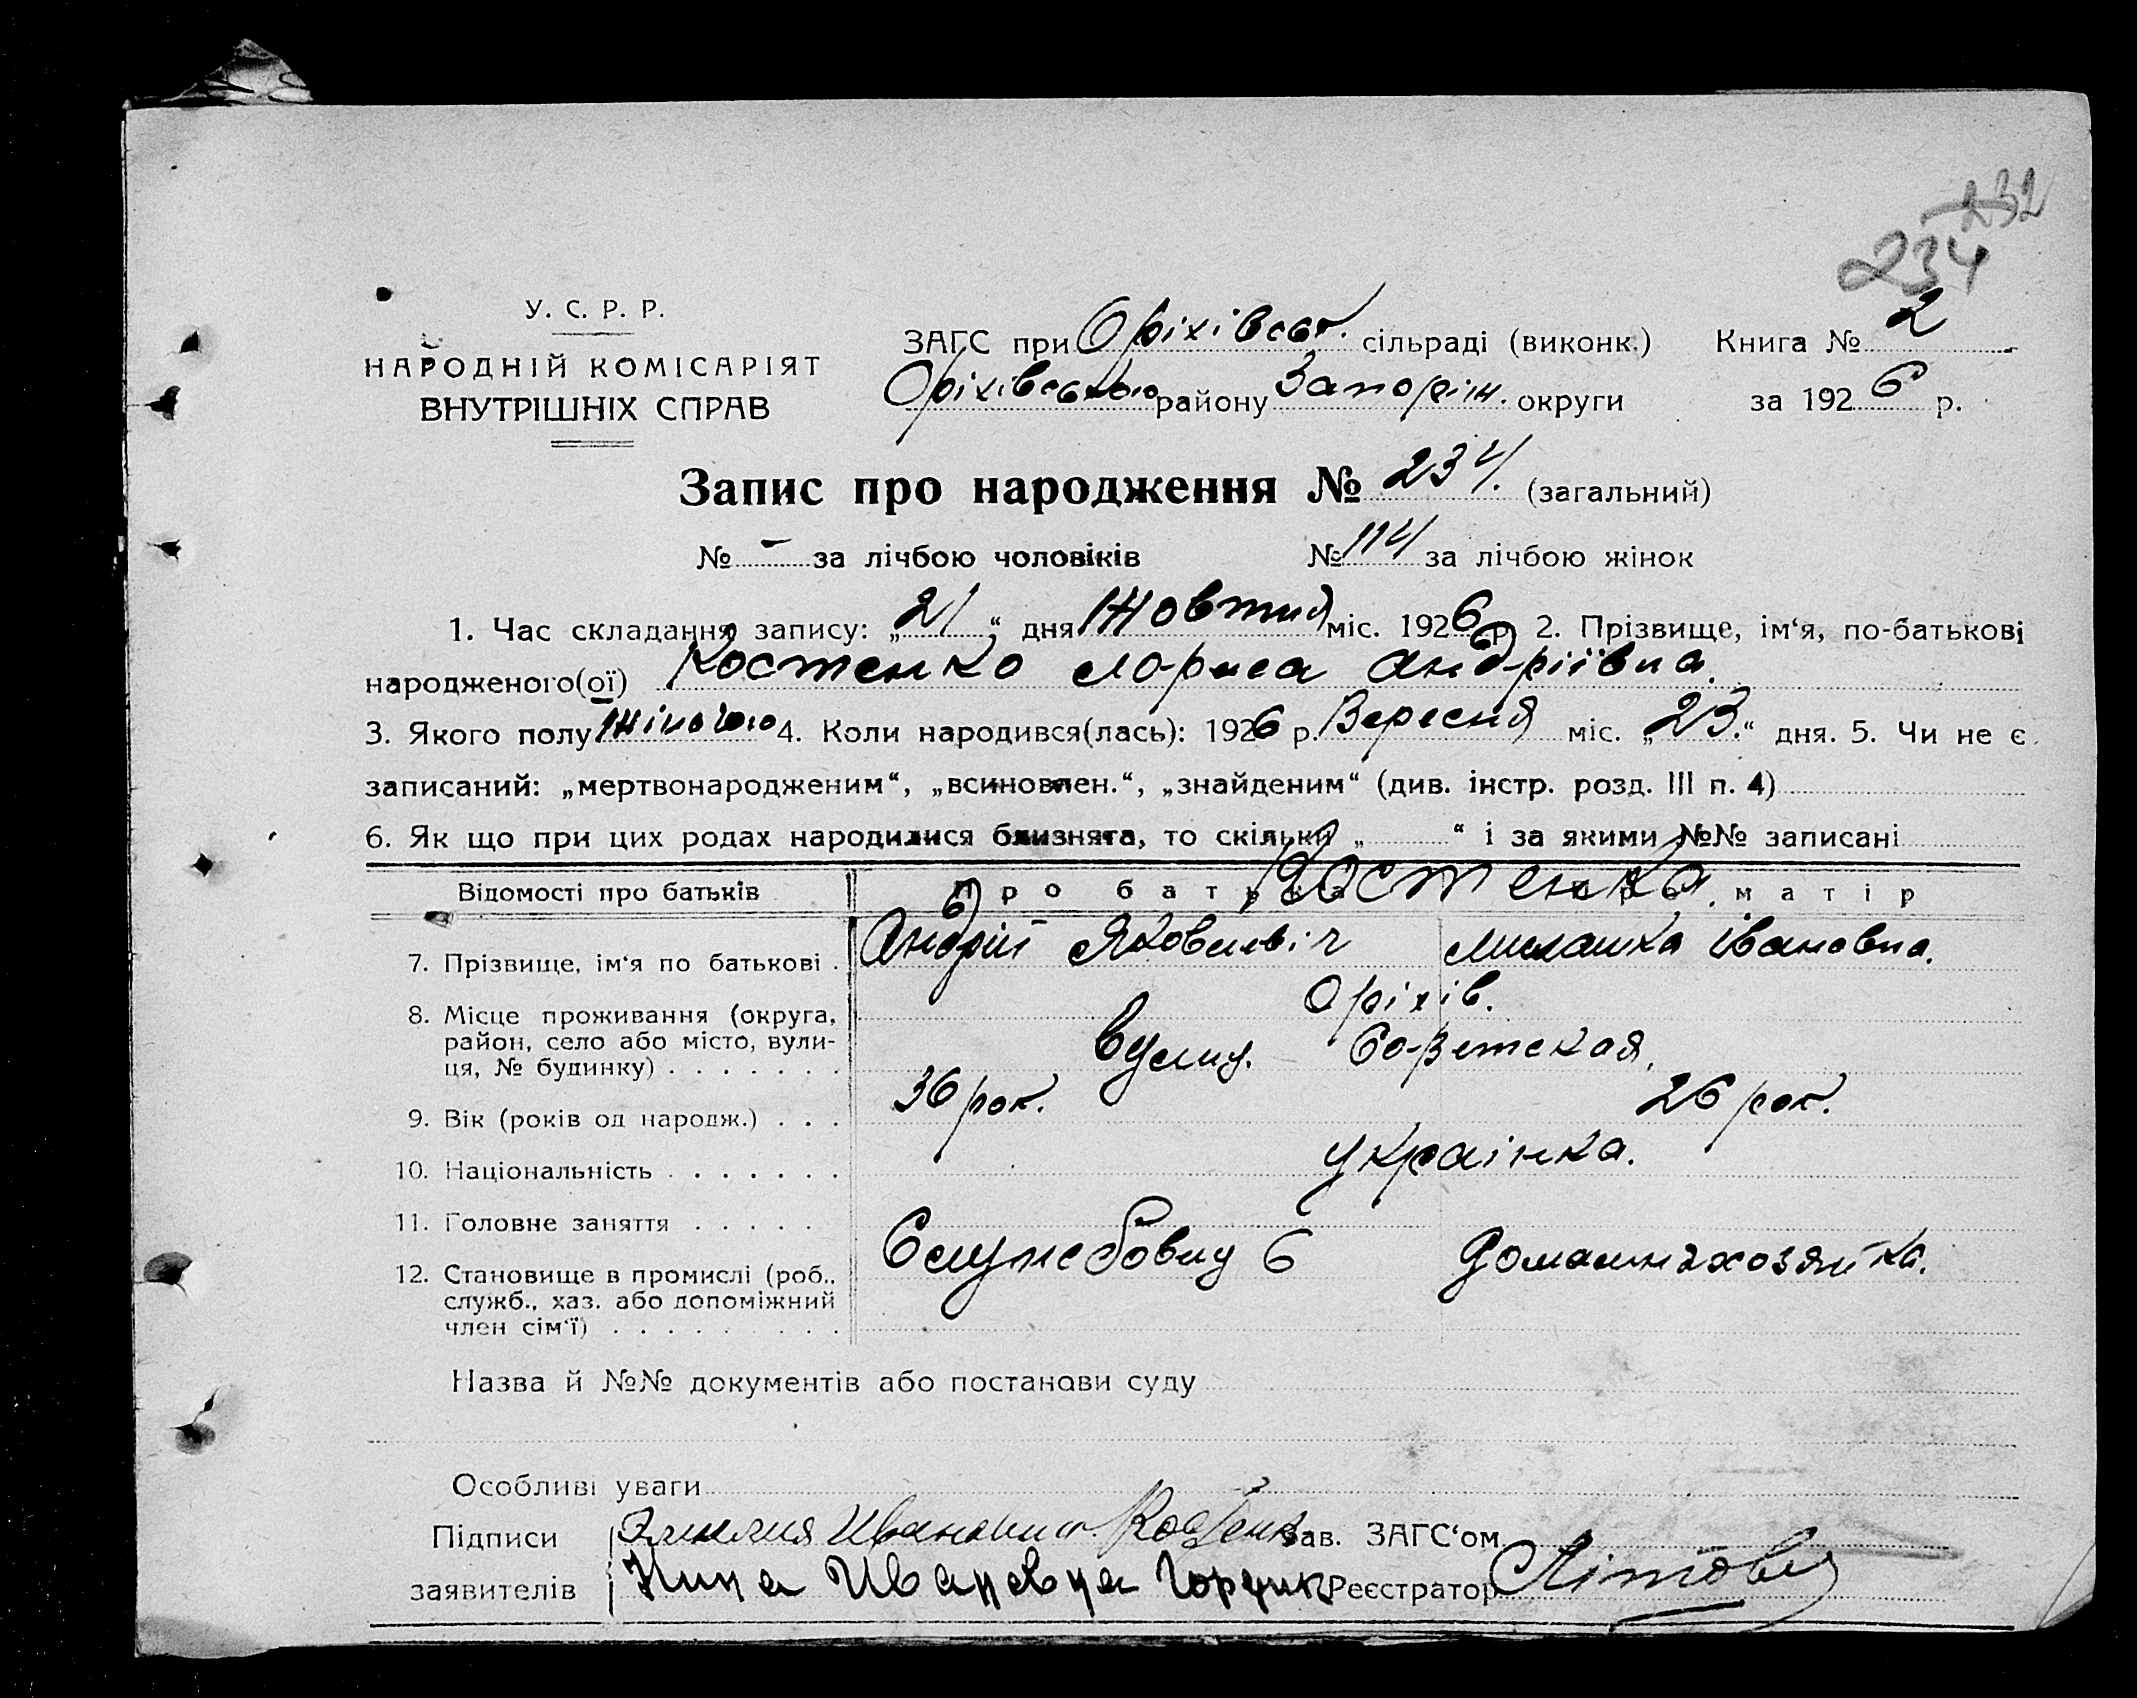 232
234
У. С. Р. Р.
НАРОДНІЙ КОМІСАРІЯТ
ВНУТРІШНІХ СПРАВ
ЗАГС при Оріхівськ. сільраді (виконк.) Книга № 2
Оріхівського району Запоріж. округи за 1926 р.
Запис про народження № 234. (загальний)
№ - за лічбою чоловіків № 114 за лічбою жінок
1. Час складання запису: „21“ дня Жовтня міс. 1926 р. 2. Прізвище, ім‘я, по-батькові
народженого(ої) Костенко Лориса Андріївна.
3. Якого полу жіночого 4. Коли народився(лась): 1926 р. Вересня міс. „23.“ дня. 5. Чи не є
записаний: „мертвонародженим“, „всиновлен.“, „знайденим“ (див. інстр. розд. III п. 4)
6. Як що при цих родах народилися близнята, то скільки „ “ і за якими №№ записані
Відомості про батьків Про батька Про матір
Костенко.
7. Прізвище, ім‘я по батькові. Андрій Яковлевіч Милашка Івановна.
8. Місце проживання (округа, Оріхів.
район, село або місто, вули-
ця, № будинку) . . . . . . . Вулиц. Советская,
9. Вік (років од народж.) . . . 36 рок. 26 рок.
10. Національність . . . . . . . Українка.
11. Головне заняття . . . . .
12. Становище в промислі (роб., Служебовиц Домашняхозяйка.
служб., хаз. або допоміжний
член сім‘ї) . . . . . . . . .
Назва й №№ документів або постанови суду
Особливі уваги
Підписи Эмилия Ивановна Зав. ЗАГС‘ом
заявителів Нина Ивановна Гордик Реєстратор